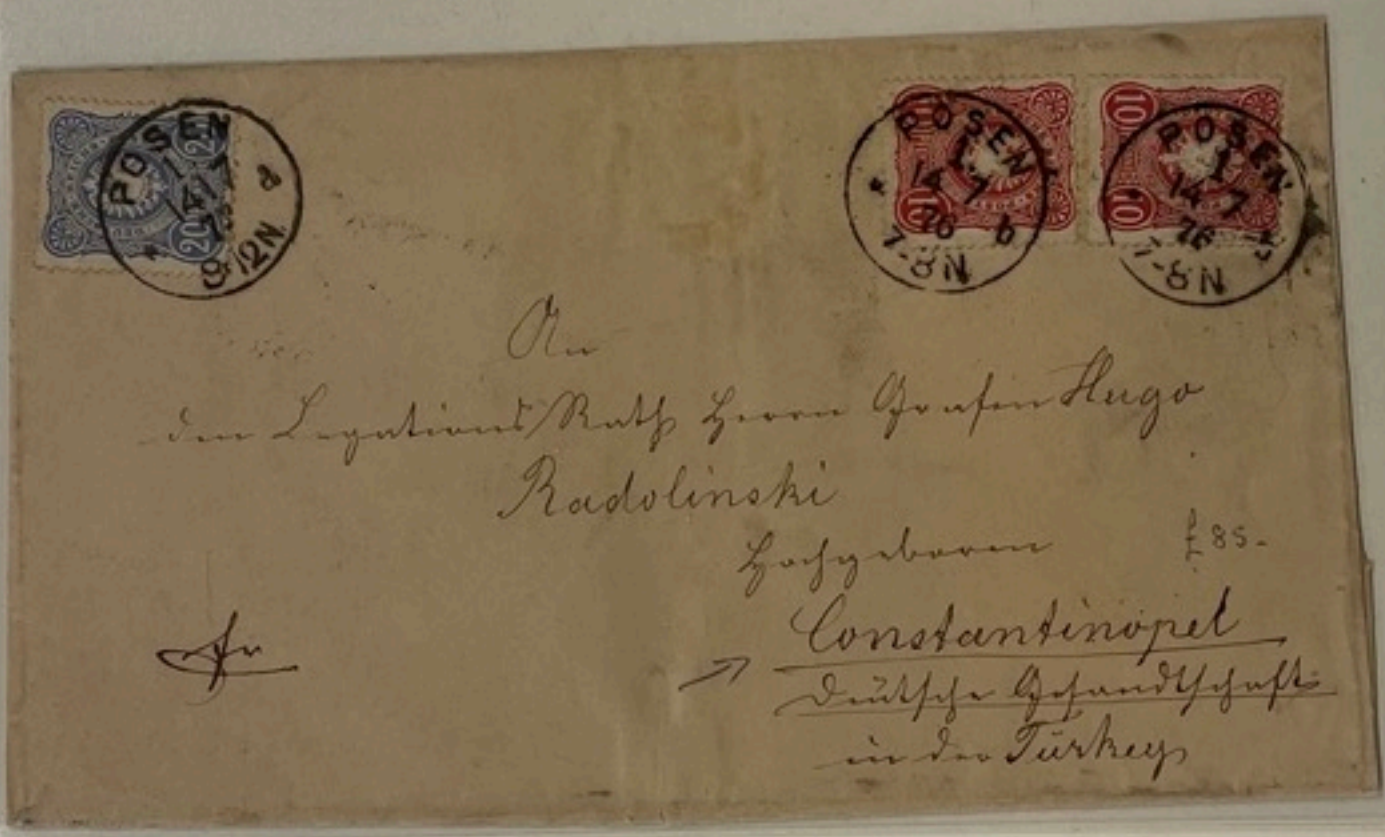 20
20
POSEN
1
14/7
9-12N
d
10
10
POSEN
1
14 7
76
b
7-8N
10
10
POSEN
1
14 7
76
7-8N
An
den Legations Rath Herrn Grafen Hugo
Radolinski
Hochgeboren
£85-
fr
Constantinopel
Deutsche Gesandtschaft
in der Türkey